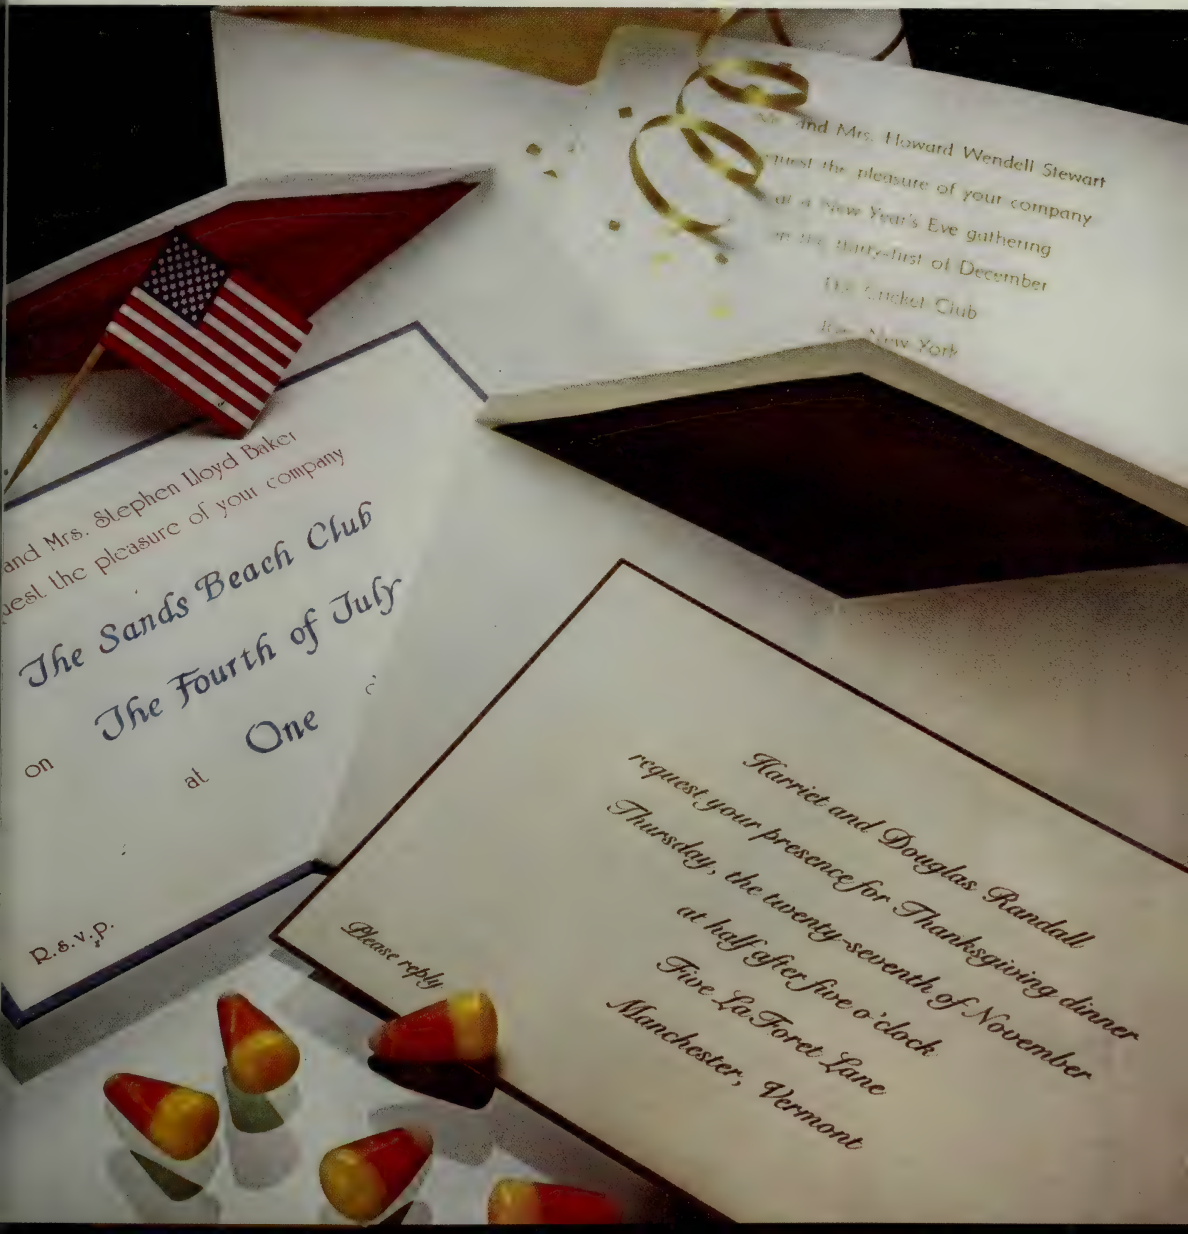 and Mrs. Howard Wendell Stewart
the pleasure of your company
at a New Year's Eve gathering
on the thirty-first of December
Cricket Club
New York
and Mrs. Stephen Lloyd Baker
the pleasure of your company
The Sands Beach Club
on The Fourth of July
at One
R.s.v.p.
Harriet and Douglas Randall
request your presence for Thanksgiving dinner
Thursday, the twenty-seventh of November
at half after five o'clock
Five La Foret Lane
Manchester, Vermont
Please reply